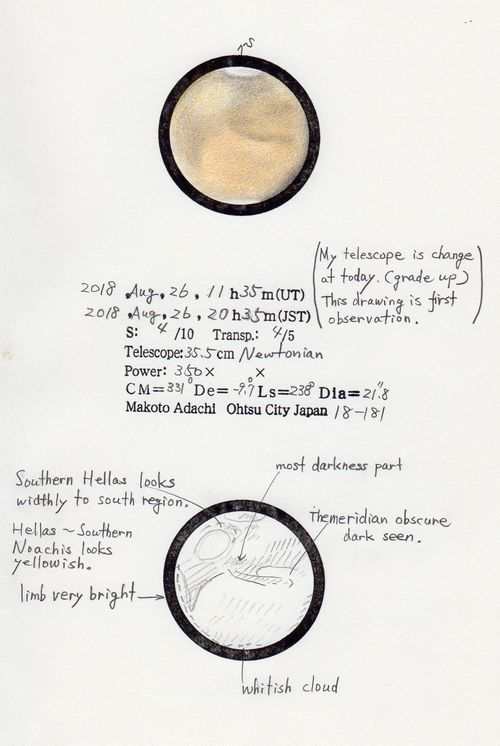 S
2018 Aug, 26, 11 h 35 m (UT)
2018 Aug, 26, 20 h 35 m (JST)
(My telescope is change
at today. (grade up)
This drawing is first
observation.)
S: 4 /10 Transp.: 4/5
Telescope: 35.5 cm Newtonian
Power: 350 × ×
CM=331° De= -9.°9 Ls=238° Dia=21."8
Makoto Adachi Ohtsu City Japan 18-181
most darkness part
Southern Hellas looks
widthly to south region.
Themeridian obscure
dark seen.
Hellas ~ Southern
Noachis looks
yellowish.
limb very bright
whitish cloud